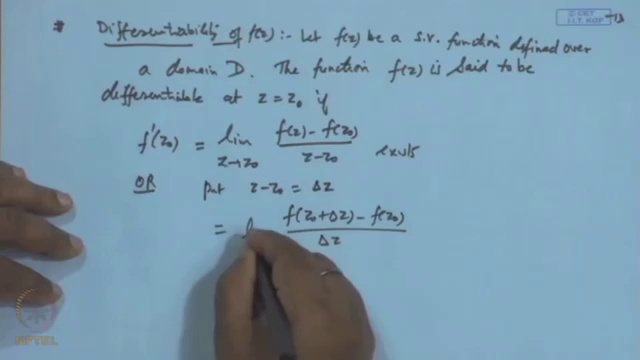 © CET
I.I.T. KGP
-13
* Differentiability of f(z) :- Let f(z) be a s.v. function defined over
a domain D. The function f(z) is said to be
differentiable at z = z₀ if
f'(z₀) = lim z→z₀ (f(z) - f(z₀)) / (z - z₀) exists
OR put z - z₀ = Δz
= (f(z₀+Δz) - f(z₀)) / Δz
NPTEL